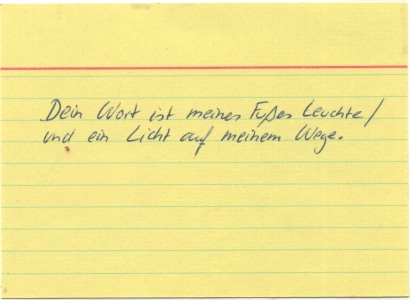 Dein Wort ist meines Fußes Leuchte/
und ein Licht auf meinem Wege.